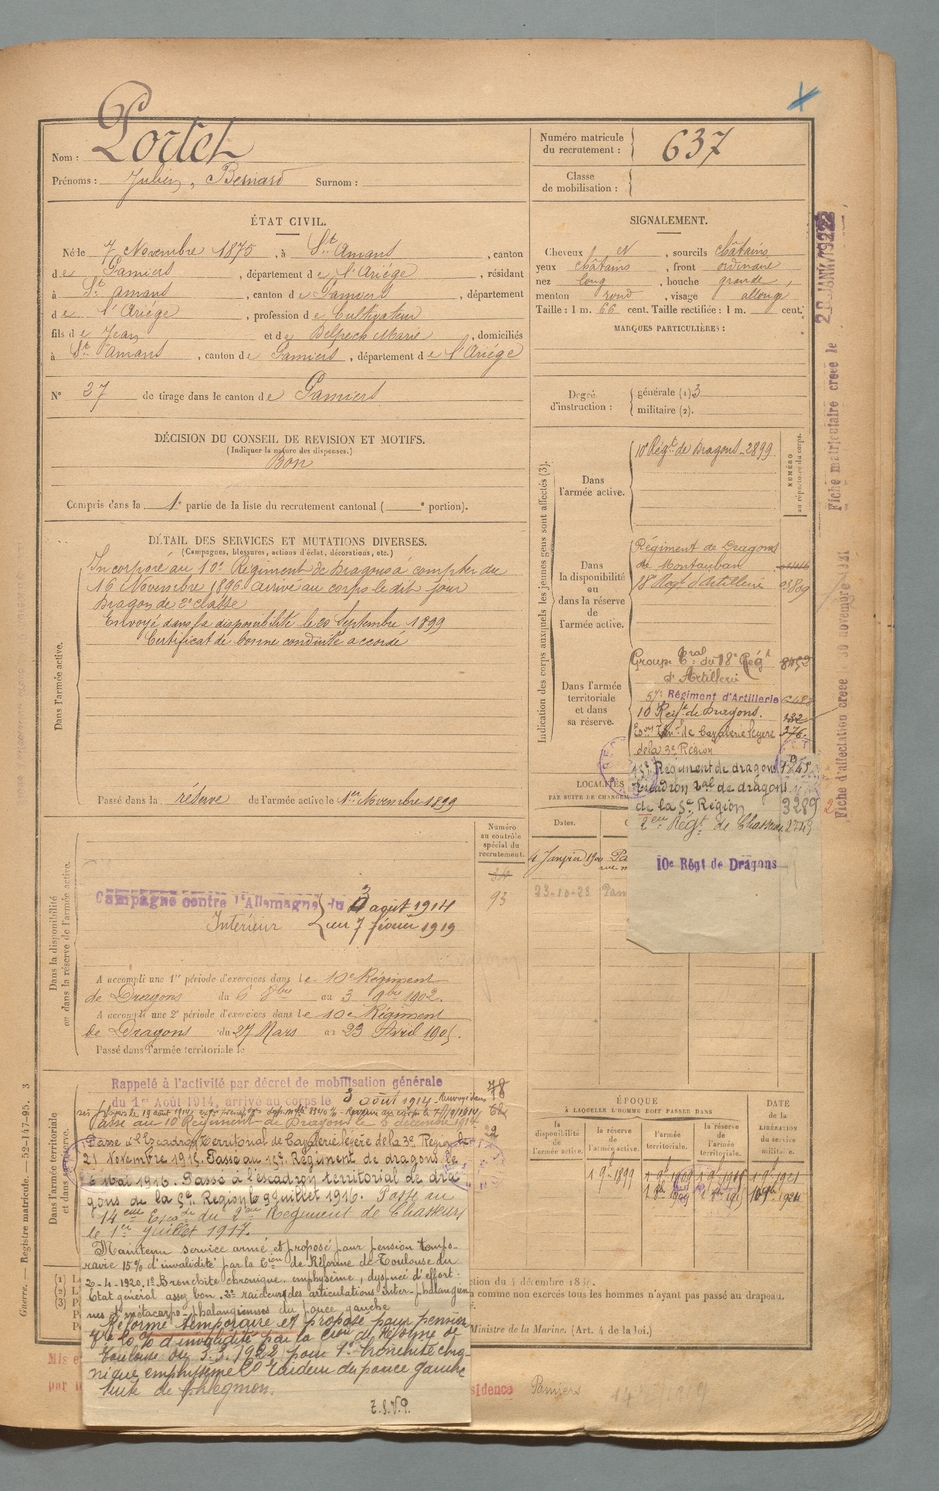 Nom : Portet
Prénoms : Julien, Bernard Surnom :
Numéro matricule du recrutement : 637
Classe de mobilisation :
ÉTAT CIVIL.
Né le 7 Novembre 1875, à St Amans, canton
de Pamiers, département de l'Ariége, résidant
à St Amans, canton de Pamiers, département
de l'Ariége, profession de Cultivateur
fils de Jean et de Delpech Marie, domiciliés
à St Amans, canton de Pamiers, département de l'Ariége
N° 27 de tirage dans le canton de Pamiers
SIGNALEMENT.
Cheveux N, sourcils châtains
yeux châtains, front ordinaire
nez long, bouche grande,
menton rond, visage allongé
Taille : 1 m. 66 cent. Taille rectifiée : 1 m. cent.
MARQUES PARTICULIÈRES :
Degré d'instruction : générale (1) 3
militaire (2).
DÉCISION DU CONSEIL DE REVISION ET MOTIFS.
(Indiquer la nature des dispenses.)
Bon
Compris dans la 1e partie de la liste du recrutement cantonal ( e portion).
DÉTAIL DES SERVICES ET MUTATIONS DIVERSES.
(Campagnes, blessures, actions d'éclat, décorations, etc.)
Dans l'armée active.
Incorporé au 10e Régiment de Dragons à compter du
16 Novembre 1896 arrivé au corps le dit jour
Dragon de 2e classe
Envoyé dans la disponibilité le 20 Septembre 1899
Certificat de bonne conduite accordé
Passé dans la réserve de l'armée active le 1er Novembre 1899
Indication des corps auxquels les jeunes gens sont affectés (3).
NUMÉRO au répertoire du corps.
Dans l'armée active.
10e Régt de Dragons 2899
Dans la disponibilité ou dans la réserve de l'armée active.
Régiment de Dragons
de Montauban
18e Régt d'Artillerie
Dans l'armée territoriale et dans sa réserve.
Groupe Tral du 18e Régt
d'Artillerie
57e Régiment d'Artillerie
10 Regt de Dragons. 132
de Cavalerie légère 376
15e Régiment de dragons
Escadron Tal de dragons
de la 5e Région 3289
2eme Régt de Chasseurs 2749
10e Régt de Dragons
LOCALITÉS
PAR SUITE DE CHANGEM
Dates.
4 Janvier 1900
23-10-23 Pam
Numéro au contrôle spécial du recrutement.
93
Dans la disponibilité ou dans la réserve de l'armée active.
Campagne contre l'Allemagne du 3 août 1914
Intérieur au 7 février 1919
A accompli une 1re période d'exercices dans le 10e Régiment
de Dragons du 6 8bre au 3 9bre 1902.
A accompli une 2e période d'exercices dans le 10e Régiment
de Dragons du 27 Mars au 23 Avril 1905.
Passé dans l'armée territoriale le
Dans l'armée territoriale et dans sa réserve.
Rappelé à l'activité par décret de mobilisation générale
du 1er Août 1914, arrivé au corps le 3 août 1914.
Passé au 10e Régiment de Dragons le 6 décembre 1914
Passé à l'Escadron territorial de Cavalerie légère de la 3e Région le
21 Novembre 1915. Passé au 15e Régiment de dragons le
6 Mai 1916. Passé à l'escadron territorial de dra
gons de la 5e Région le 9 juillet 1916. Passé au
14eme Escon du 2eme Régiment de Chasseurs
le 1er Juillet 1917.
Maintenu service armé et proposé pour pension tempo-
raire 15% d'invalidité par la Cion de Réforme de Toulouse du
2-4-1920. 1° Bronchite chronique, emphysème, dyspnée d'effort :
Etat général assez bon. 2° raideur des articulations inter-phalangien
nes et métacarpo-phalangiennes du pouce gauche
Réformé temporaire et proposé pour pension
d'invalidité par la Cion de Réforme de
Toulouse du 3.3.1922 pour 1° bronchite chro-
nique emphysème 2° raideur du pouce gauche
suite de phlegmon.
T.S.V.P.
ÉPOQUE
À LAQUELLE L'HOMME DOIT PASSER DANS
la disponibilité de l'armée active.
la réserve de l'armée active.
l'armée territoriale.
la réserve de l'armée territoriale.
DATE de la LIBÉRATION du service militaire.
1 9bre 1899
ction du 4 décembre 18
comme non exercés tous les hommes n'ayant pas passé au drapeau.
Ministre de la Marine. (Art. 4 de la loi.)
Mis e
par
sidence Pamiers
Guerre. — Registre matricule. — 52-147-95. 3
Fiche matriculaire créée le 28 JANV 1922
Fiche d'affectation créée le 30 novembre 1921